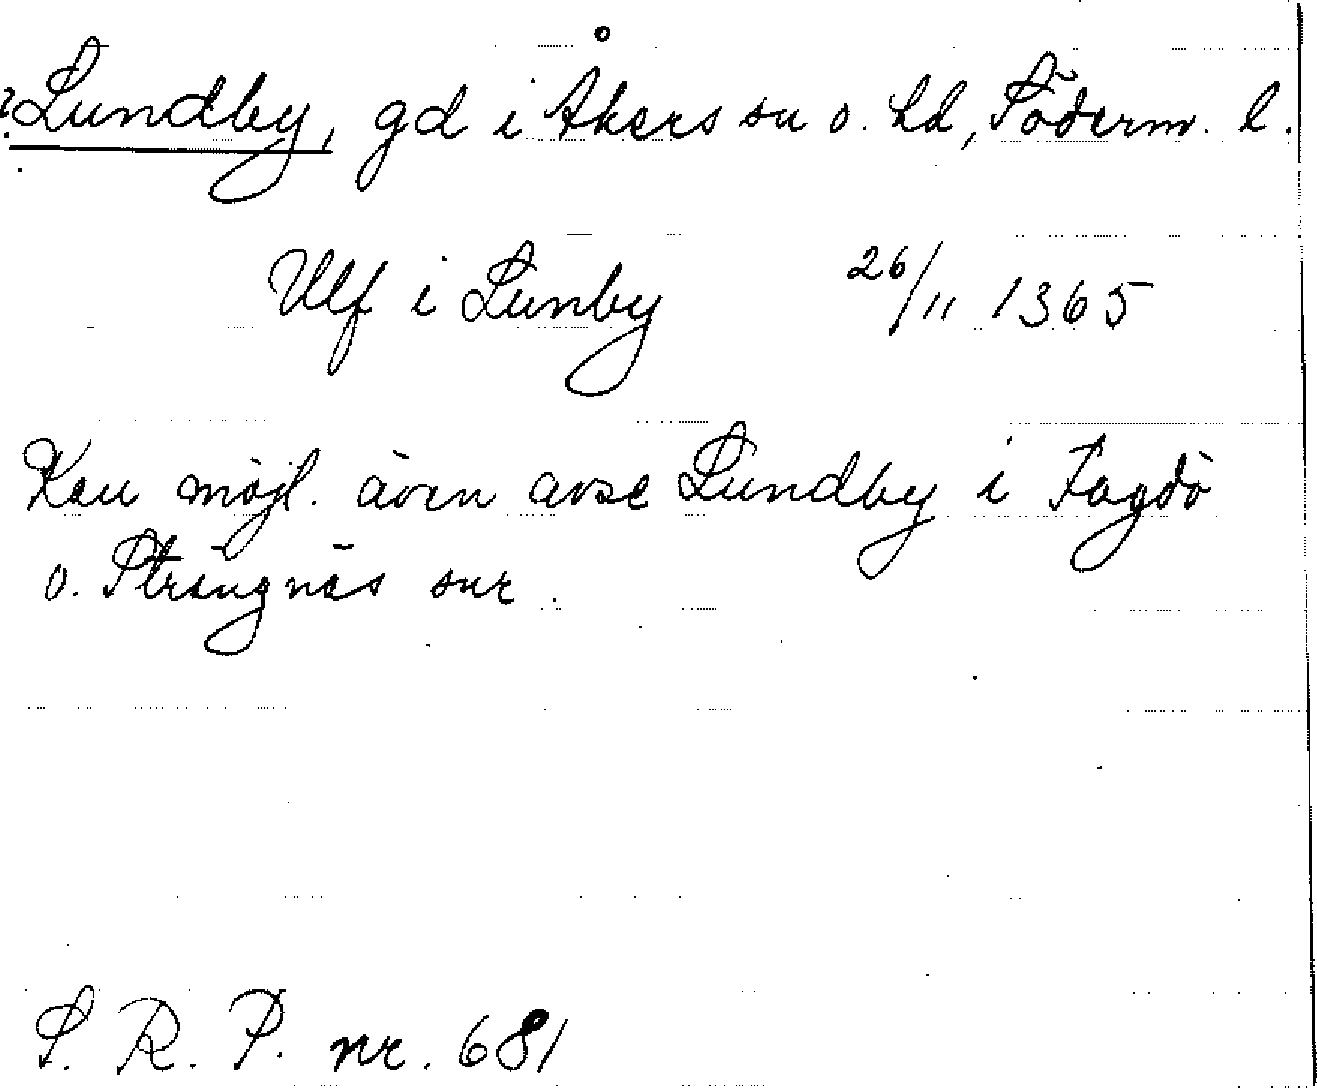 ? Lundby, gd i Åkers sn o. hd, Söderm. l.
Ulf i Lunby 26/11 1365
Kan möjl. även avse Lundby i Fogdö
o. Strängnäs snr.
S. R. P. nr. 681